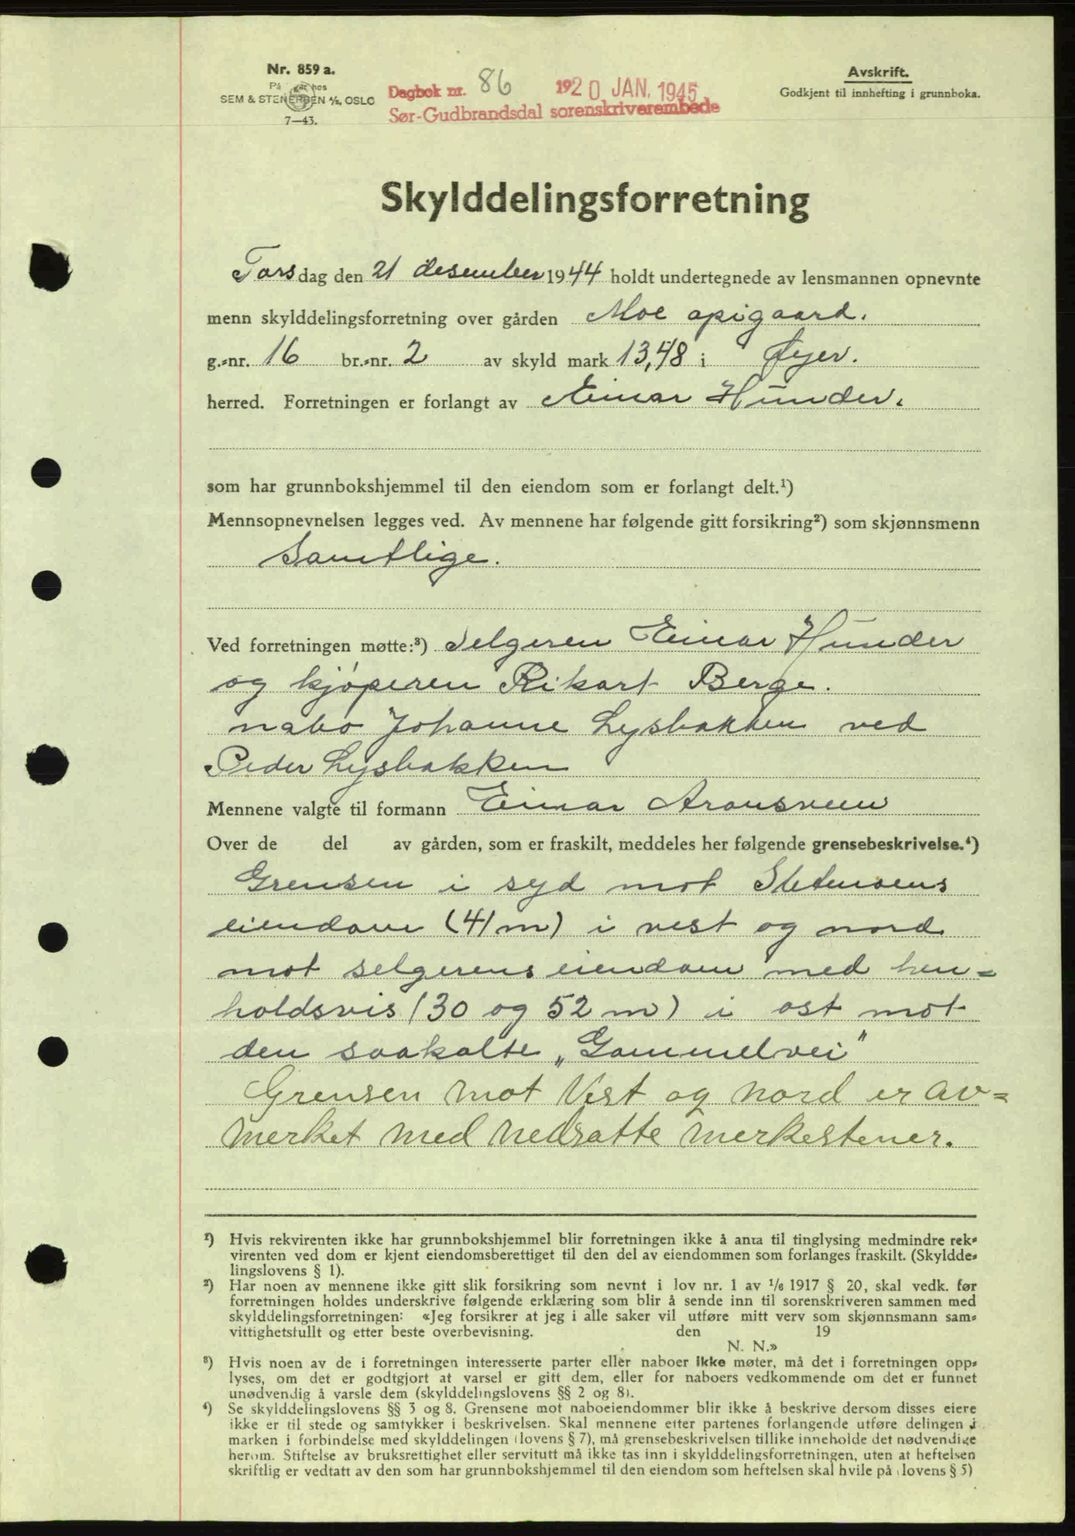 Nr. 859 a.
På hos
SEM & STENERSEN A/S, OSLO
7—43.
Dagbok nr. 86 1920 JAN. 1945
Sør-Gudbrandsdal sorenskriverembede
Avskrift.
Godkjent til innhefting i grunnboka.
Skylddelingsforretning
Torsdag den 21 desember 1944 holdt undertegnede av lensmannen opnevnte
menn skylddelingsforretning over gården Moe opigaard.
g.-nr. 16 br.-nr. 2 av skyld mark 13,48 i Øyer.
herred. Forretningen er forlangt av Einar Hunder.
som har grunnbokshjemmel til den eiendom som er forlangt delt.¹)
Mennsopnevnelsen legges ved. Av mennene har følgende gitt forsikring²) som skjønnsmenn
Samtlige.
Ved forretningen møtte:³) Selgeren Einar Hunder
og kjøperen Rikart Berge.
nabo Johanne Lysbakken ved
Peder Lysbakken
Mennene valgte til formann Einar Aronsveen
Over de del av gården, som er fraskilt, meddeles her følgende grensebeskrivelse.⁴)
Grensen i syd mot
eiendom (41 m) i vest og nord
mot selgerens eiendom med hen-
holdsvis (30 og 52 m) i øst mot
den saakalte „Gammelvei"
Grensen mot Vest og nord er av-
merket med nedsatte merkestener.
¹) Hvis rekvirenten ikke har grunnbokshjemmel blir forretningen ikke å anta til tinglysing medmindre rek-
virenten ved dom er kjent eiendomsberettiget til den del av eiendommen som forlanges fraskilt. (Skyldde-
lingslovens § 1).
²) Har noen av mennene ikke gitt slik forsikring som nevnt i lov nr. 1 av 1/6 1917 § 20, skal vedk. før
forretningen holdes underskrive følgende erklæring som blir å sende inn til sorenskriveren sammen med
skylddelingsforretningen: «Jeg forsikrer at jeg i alle saker vil utføre mitt verv som skjønnsmann sam-
vittighetsfullt og etter beste overbevisning. den 19
N. N.»
³) Hvis noen av de i forretningen interesserte parter eller naboer ikke møter, må det i forretningen opp-
lyses, om det er godtgjort at varsel er gitt dem, eller for naboers vedkommende om det er funnet
unødvendig å varsle dem (skylddelingslovens §§ 2 og 8).
⁴) Se skylddelingslovens §§ 3 og 8. Grensene mot naboeiendommer blir ikke å beskrive dersom disses eiere
ikke er til stede og samtykker i beskrivelsen. Skal mennene etter partenes forlangende utføre delingen i
marken i forbindelse med skylddelingen (lovens § 7), må grensebeskrivelsen tillike inneholde det nødvendige
herom. Stiftelse av bruksrettighet eller servitutt må ikke tas inn i skylddelingsforretningen, uten at heftelsen
skriftlig er vedtatt av den som har grunnbokshjemmel til den eiendom som heftelsen skal hvile på (lovens § 5)